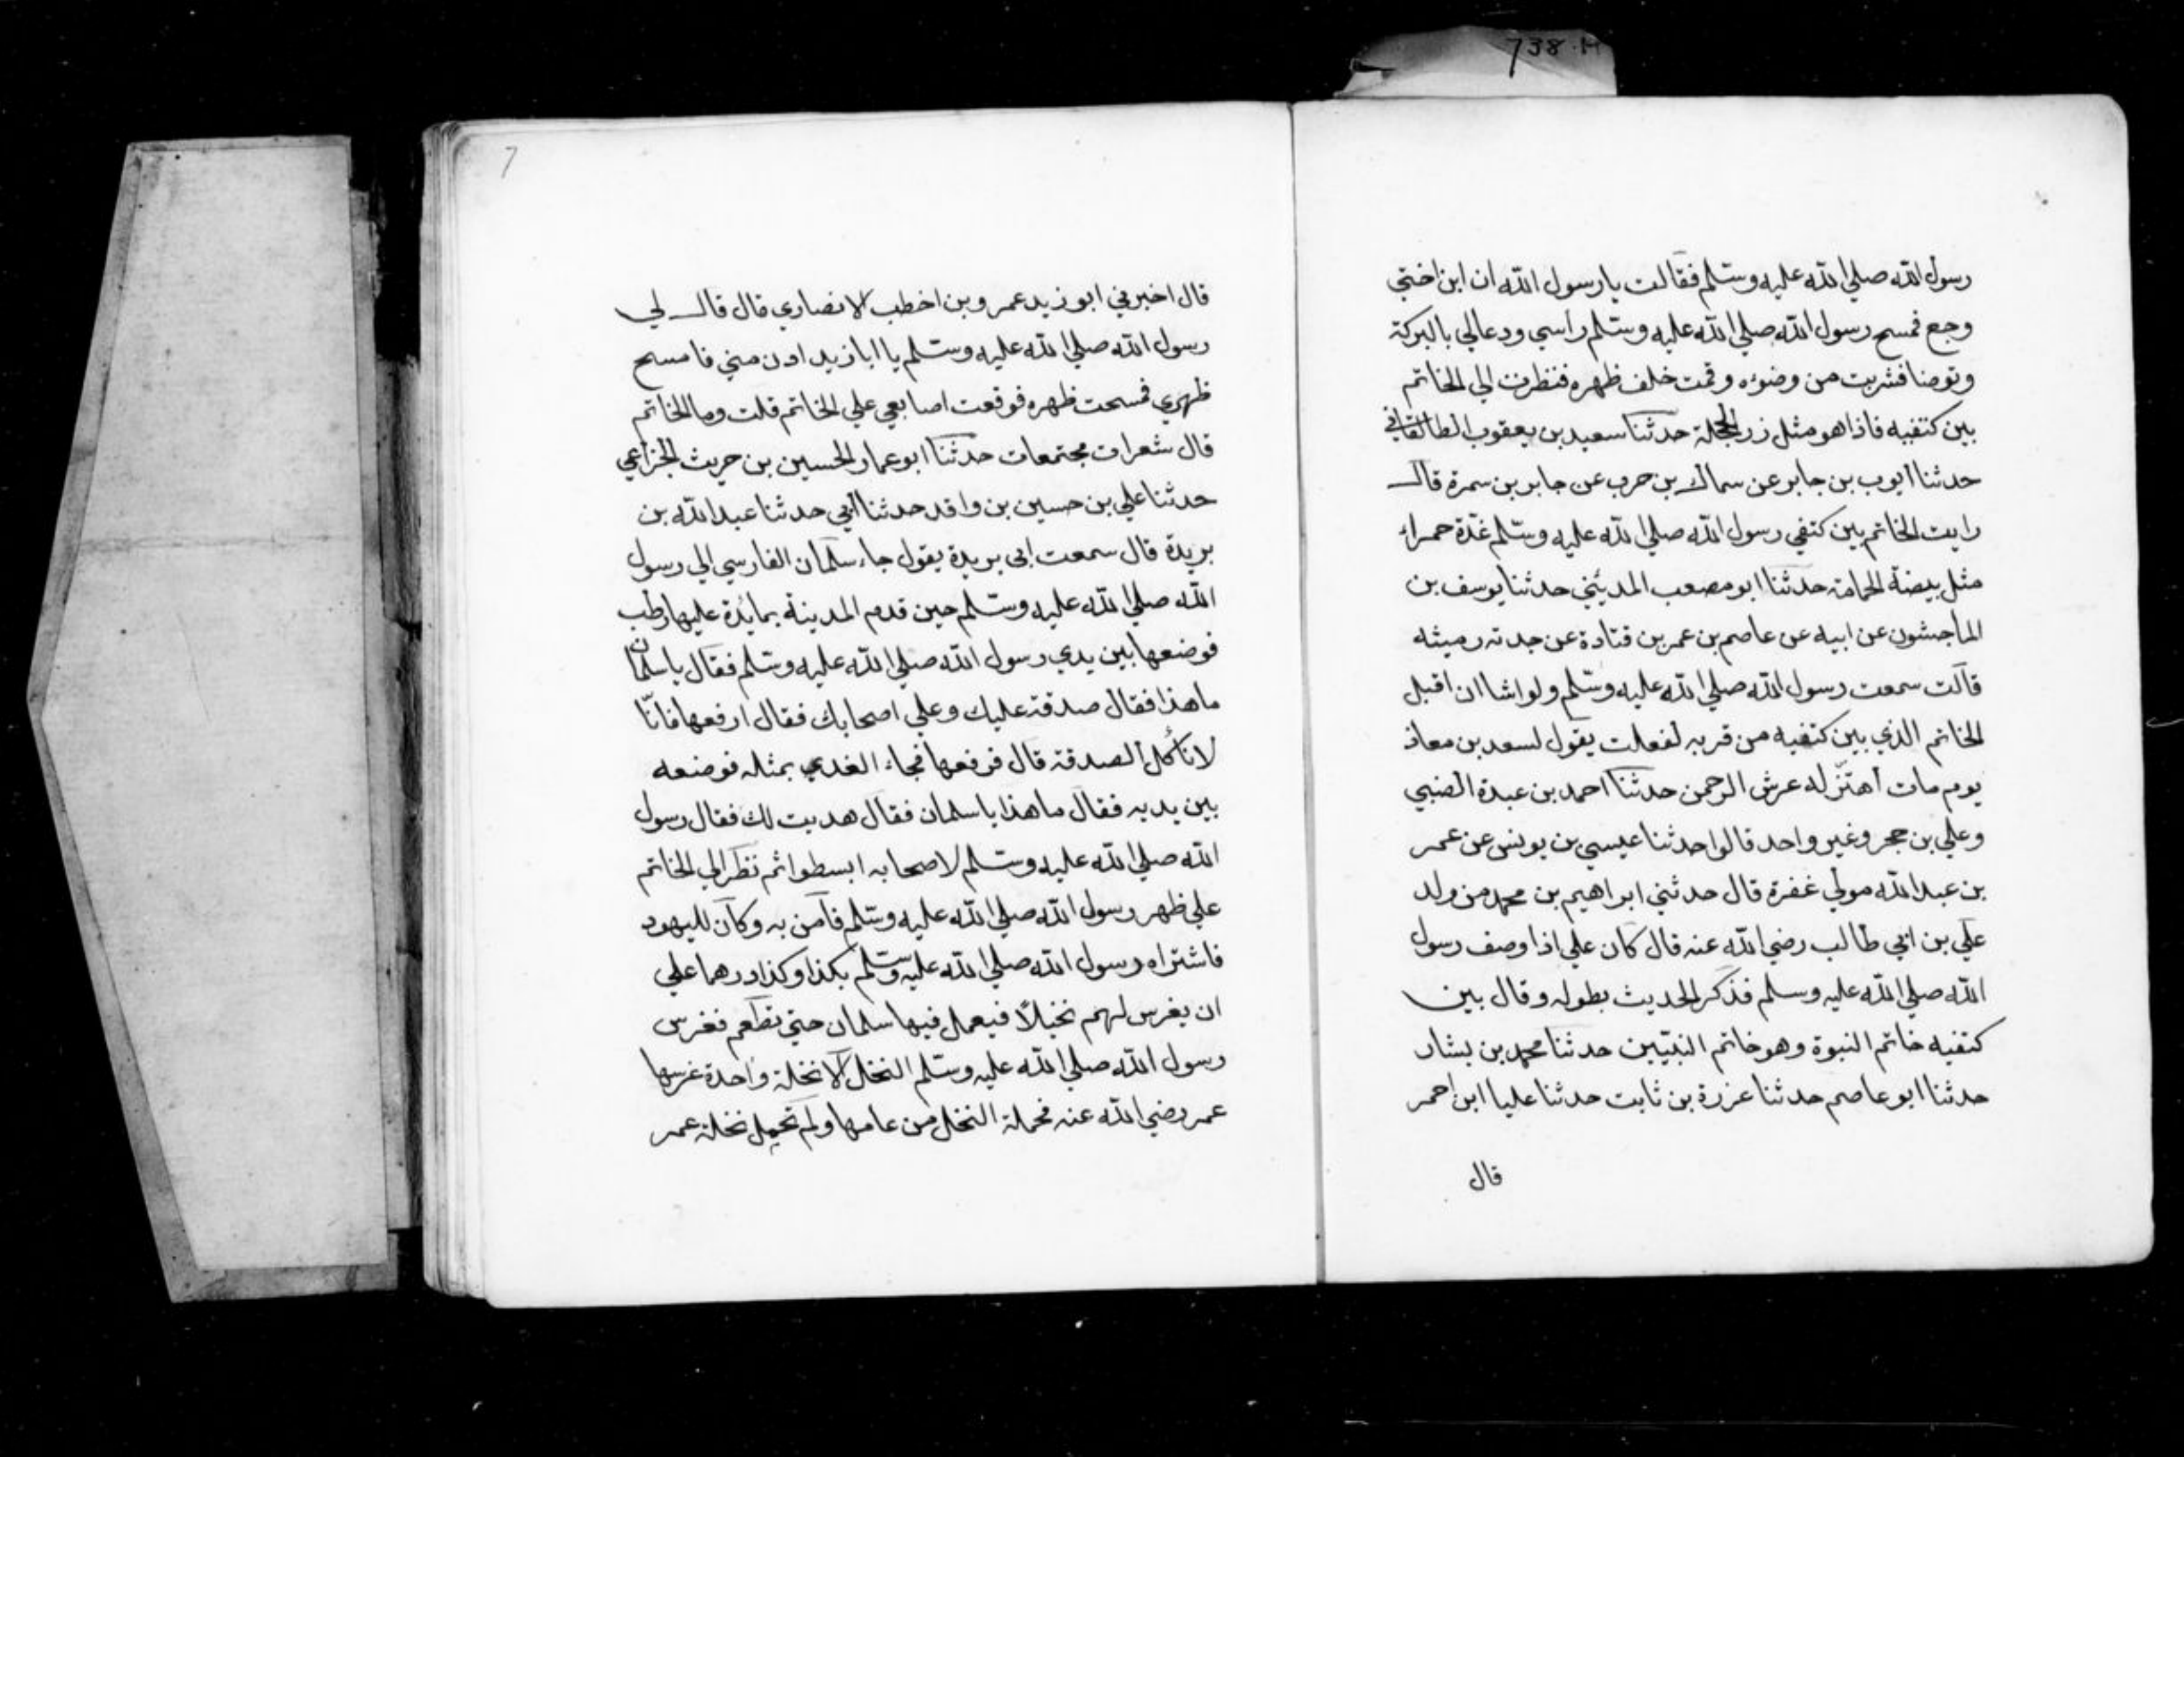 738.H
رسول الله صلي الله عليه وسلم فقالت يا رسول الله ان ابن اختي
وجع فمسح رسول الله صلي الله عليه وسلم راسي ودعالي بالبركة
وتوضا فشربت من وضوئه وقمت خلف ظهره فنظرت الي الخاتم
بين كتفيه فاذا هو مثل زر الحجلة حدثنا سعيد بن يعقوب الطالقاني
حدثنا ايوب بن جابر عن سماك بن حرب عن جابر بن سمرة قال
رايت الخاتم بين كتفي رسول الله صلي الله عليه وسلم غدة حمراء
مثل بيضة الحمامة حدثنا ابو مصعب المديني حدثنا يوسف بن
الماجشون عن ابيه عن عاصم بن عمر بن قتادة عن جدته رميثه
قالت سمعت رسول الله صلي الله عليه وسلم ولو اشا ان اقبل
الخاتم الذي بين كتفيه من قربه لفعلت يقول لسعد بن معاذ
يوم مات اهتز له عرش الرحمن حدثنا احمد بن عبدة الضبي
وعلي بن حجر وغير واحد قالوا حدثنا عيسي بن يونس عن عمر
بن عبد الله مولي غفرة قال حدثني ابراهيم بن محمد من ولد
علي بن ابي طالب رضي الله عنه قال كان علي اذا وصف رسول
الله صلي الله عليه وسلم فذكر الحديث بطوله وقال بين
كتفيه خاتم النبوة وهو خاتم النبيين حدثنا محمد بن بشار
حدثنا ابو عاصم حدثنا عزرة بن ثابت حدثنا عليا ابن احمر
قال
7
قال اخبرني ابو زيد عمرو بن اخطب الانصاري قال قال لي
رسول الله صلي الله عليه وسلم يا ابا زيد ادن مني فامسح
ظهري فمسحت ظهره فوقعت اصابعي علي الخاتم قلت وما الخاتم
قال شعرات مجتمعات حدثنا ابو عمار الحسين بن حريث الخزاعي
حدثنا علي بن حسين بن واقد حدثنا ابي حدثنا عبد الله بن
بريدة قال سمعت ابي بريدة يقول جاء سلمان الفارسي الي رسول
الله صلي الله عليه وسلم حين قدم المدينة بمائدة عليها رطب
فوضعها بين يدي رسول الله صلي الله عليه وسلم فقال يا سلمان
ما هذا فقال صدقة عليك وعلي اصحابك فقال ارفعها فانّا
لا ناكل الصدقة قال فرفعها فجاء الغدي بمثله فوضعه
بين يديه فقال ما هذا يا سلمان فقال هديت لك فقال رسول
الله صلي الله عليه وسلم لاصحابه ابسطوا ثم نظر الي الخاتم
علي ظهر رسول الله صلي الله عليه وسلم فآمن به وكان لليهود
فاشتراه رسول الله صلي الله عليه وسلم بكذا وكذا درهما علي
ان يغرس لهم نخيلاً فيعمل فيها سلمان حتي تطعم فغرس
رسول الله صلي الله عليه وسلم النخل الا نخلة واحدة غرسها
عمر رضي الله عنه فحملة النخل من عامها ولم تحمل نخلة عمر